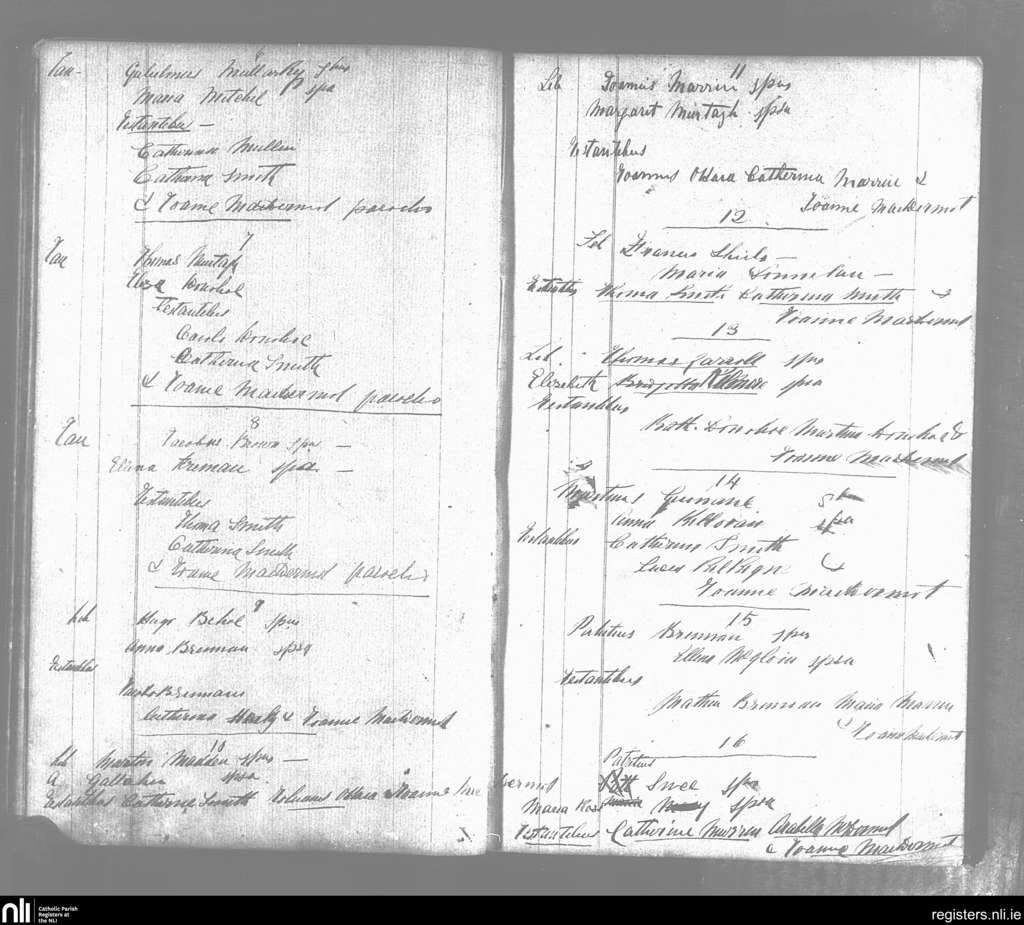 6
Jan- Gulielmus Mullarky spus
Maria Mitchel spa
Testantibus —
Catherina Mullen
Catharina Smith
& Joanne MacDermot parocho
7
Jan Thomas Murtagh
Eliza Donohoe
Testantibus
Carolo Donohoe
Catherina Smith
& Joanne MacDermot parocho
8
Jan Jacobus Brown spus —
Elina Freman spsa —
Testantibus
Thoma Smith
Catherina Smith
& Joanne MacDermot parocho
9
Feb Hugo Behol spus
Anna Brennan spsa
Testantibus
Brennan
Catherina Healy & Joanne MacDermot
10
Feb Martin Madden spus —
A Gallaher spsa
Testantibus Catherine Smith OHara Joanne MacDermot
11
Feb Joannis Marrin spus
Margaret Murtagh spsa
Testantibus
Joannes OHara Catherina Marrin &
Joanne MacDermot
12
Feb Francis Shiels —
Maria Linnelan —
Testantibus Thoma Smith Catherina Smith &
Joanne MacDermot
13
Feb. Thomas Carroll spus
Elizabeth spsa
Testantibus
Kath. Donohoe Martin Donohoe &
Joanne MacDermot
14
Martinus Gunnane
Anna Killoran spsa
Testantibus Catherine Smith
&
Joanne MacDermot
15
Patritius Brennan spus
Ellena McGloin spsa
Testantibus
Mathew Brennan Maria Marrin
& Joanne MacDermot
16
Patritius
Snee spus
Maria spsa
Testantibus Catherine Murren Arabella McDermot
& Joanne MacDermot
nli Catholic Parish
Registers at
the NLI
registers.nli.ie